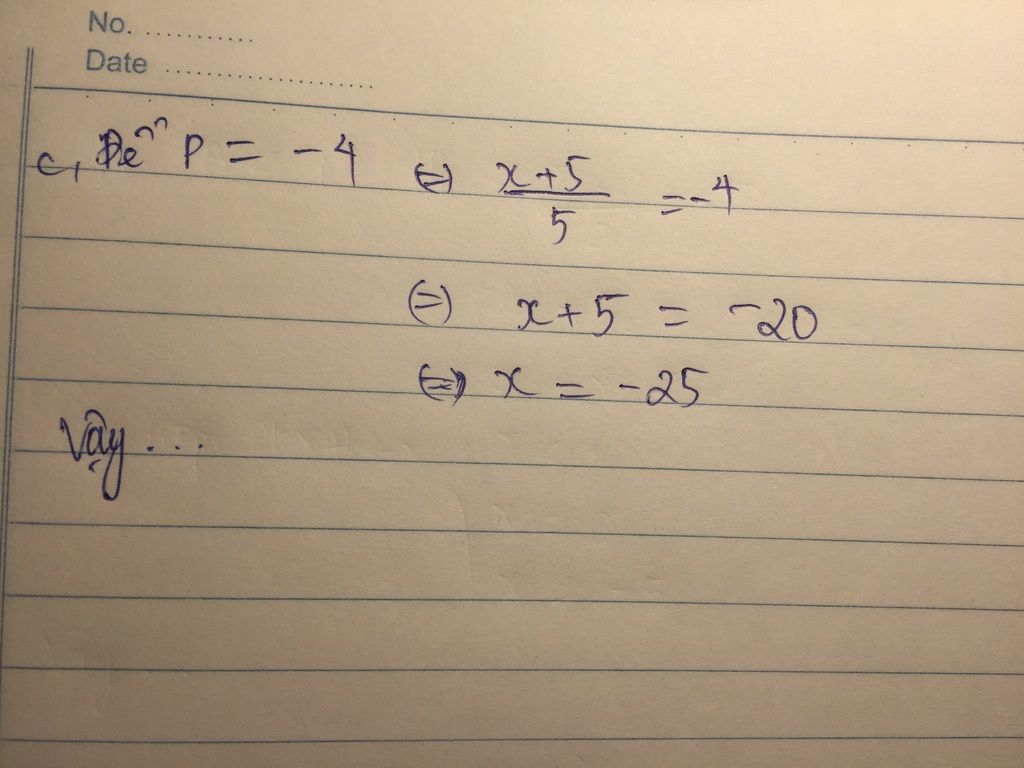 No. ...........
Date ......................
c, Để P = -4 (=) x+5 / 5 = -4
(=) x+5 = -20
(=) x = -25
Vậy ...